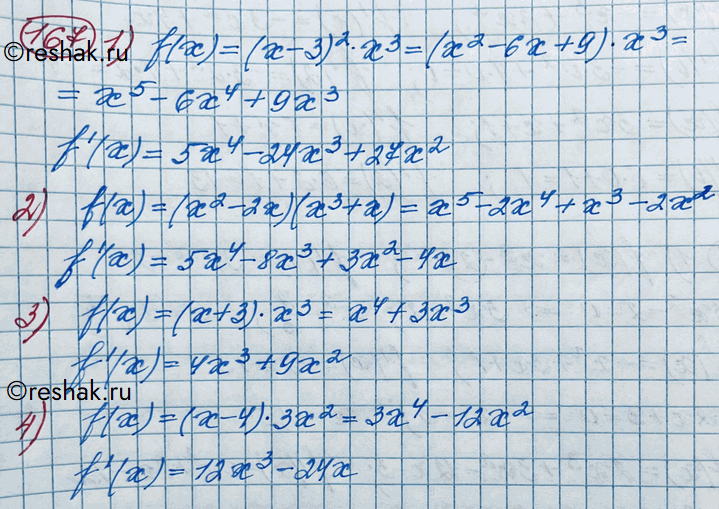 167 1) f(x) = (x-3)² · x³ = (x² - 6x + 9) · x³ =
©reshak.ru
= x⁵ - 6x⁴ + 9x³
f'(x) = 5x⁴ - 24x³ + 27x²
2) f(x) = (x² - 2x)(x³ + x) = x⁵ - 2x⁴ + x³ - 2x²
f'(x) = 5x⁴ - 8x³ + 3x² - 4x
3) f(x) = (x+3) · x³ = x⁴ + 3x³
f'(x) = 4x³ + 9x²
©reshak.ru
4) f(x) = (x-4) · 3x² = 3x⁴ - 12x²
f'(x) = 12x³ - 24x